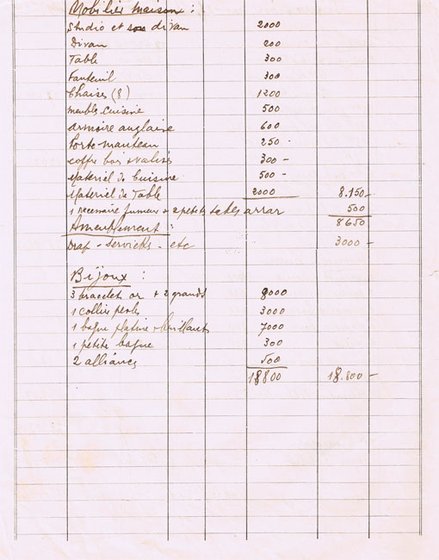 Mobilier maison :
Studio et son divan 2000
Divan 200
Table 300
Fauteuil 300
Chaises (8) 1200
meubles Cuisine 500
armoire anglaise 600
Porte manteau 250 -
coffre bois + valises 300 -
Materiel de Cuisine 500 -
Materiel de Table 2000 8.150 -
1 necessaire fumeur + 2 petits tables 500
8650
Ameublement :
Drap - Services - etc 3000 -
Bijoux :
3 bracelet or + 2 grands 8000
1 collier perles 3000
1 bague platine + brillants 7000
1 petite bague 300
2 alliances 500
18800 18.800 -